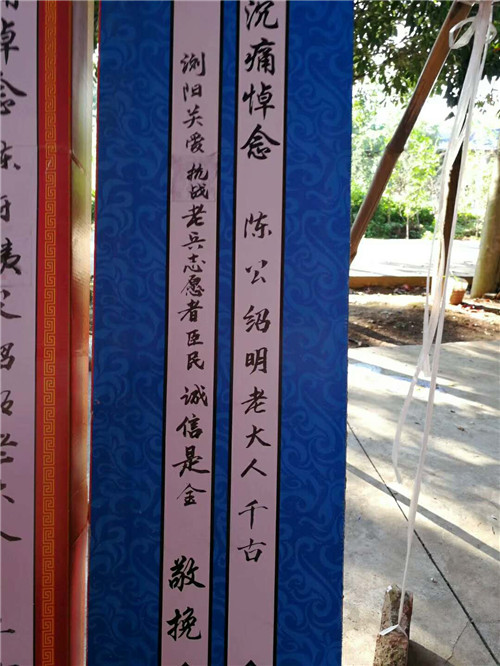 沉痛悼念 陈公绍明老大人 千古
浏阳关爱抗战老兵志愿者臣民 诚信是金 敬挽
悼念 陈府